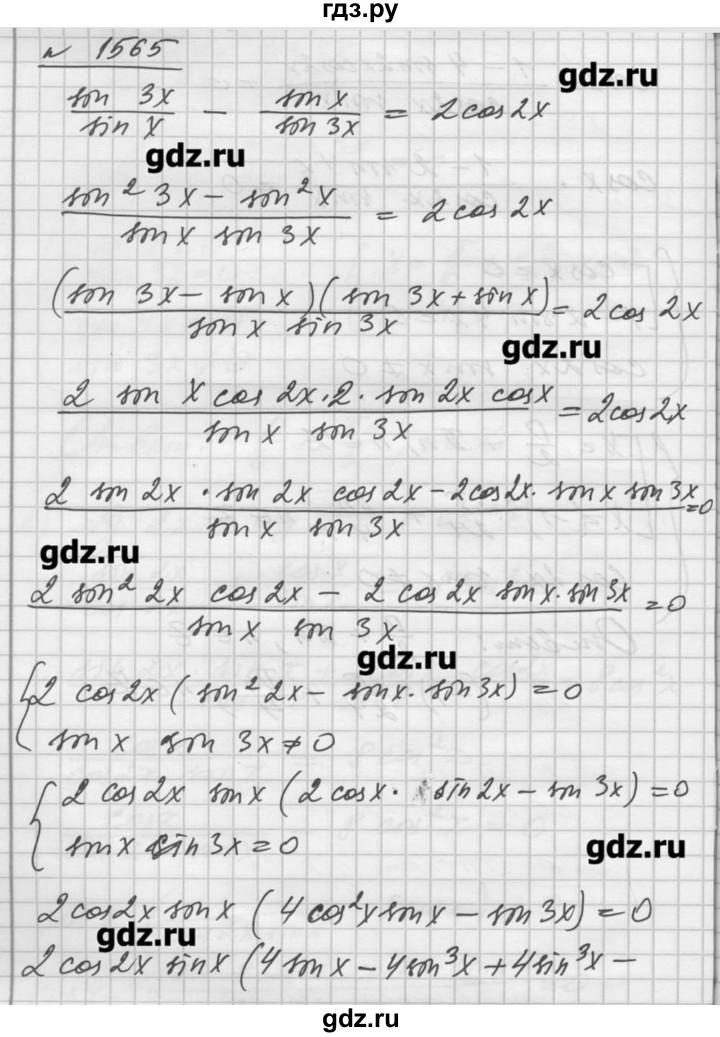 гдз.ру
№ 1565
sin 3x / sin x − sin x / sin 3x = 2cos2x
gdz.ru
gdz.ru
sin² 3x − sin² x / sin x sin 3x = 2cos 2x
(sin 3x − sin x)(sin 3x + sin x) / sin x sin 3x = 2cos 2x
gdz.ru
2 sin x cos 2x · 2 · sin 2x cos x / sin x sin 3x = 2cos2x
2 sin 2x · sin 2x cos2x − 2cos2x · sin x sin 3x / sin x sin 3x = 0
gdz.ru
2 sin² 2x cos 2x − 2 cos 2x sin x · sin 3x / sin x sin 3x = 0
gdz.ru
{ 2 cos2x ( sin² 2x − sin x · sin 3x) = 0
sin x sin 3x ≠ 0
{ 2 cos2x sin x (2 cos x · sin 2x − sin 3x) = 0
sin x sin 3x = 0
gdz.ru
2cos2x sin x (4 cos² x sin x − sin 3x) = 0
gdz.ru
2 cos 2x sin x (4 sin x − 4 sin³ x + 4 sin³ x −
gdz.ru